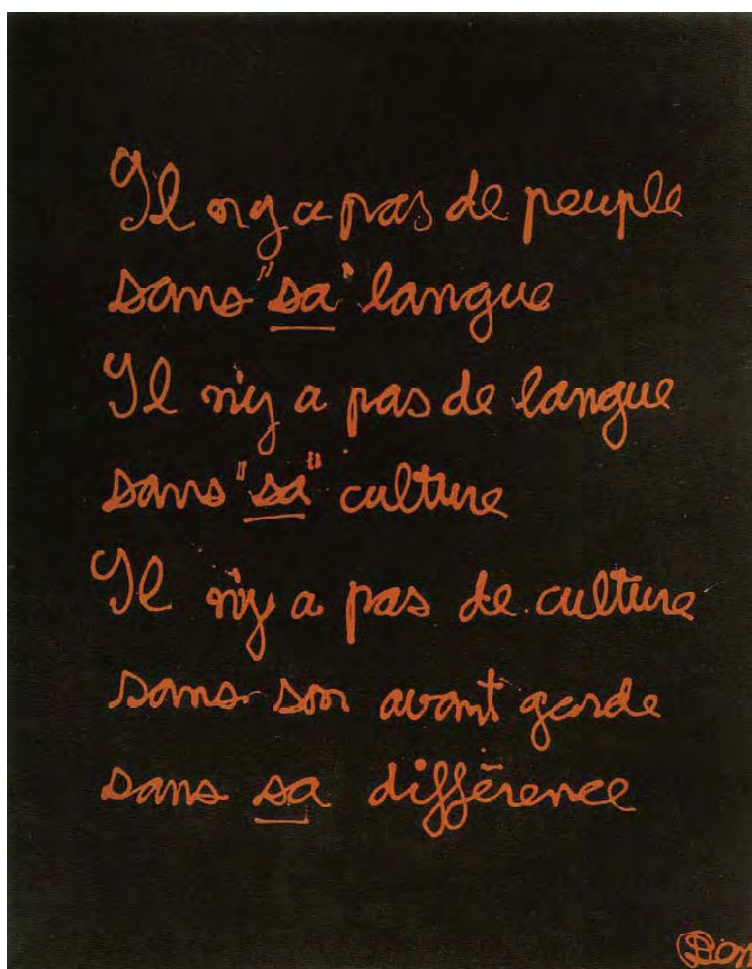 Il n'y a pas de peuple
sans "sa" langue
Il n'y a pas de langue
sans "sa" culture
Il n'y a pas de culture
sans son avant garde
sans sa différence